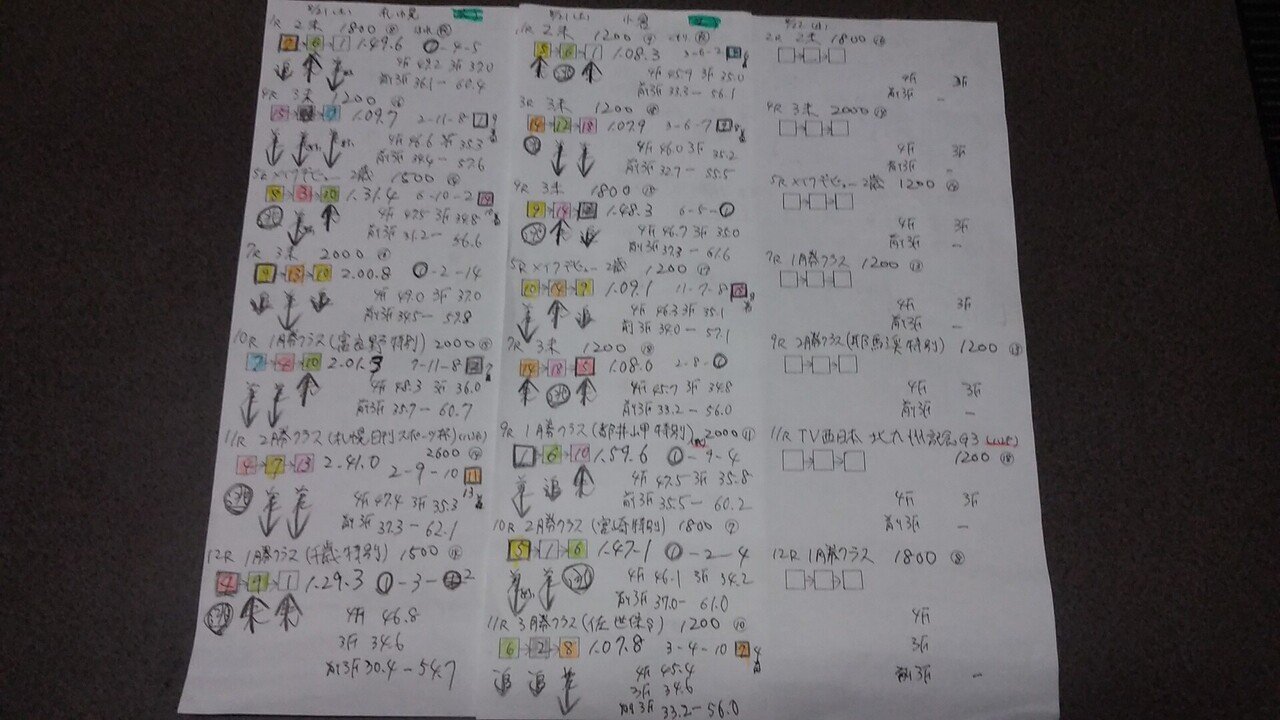 8/21(土) 札幌
1R 2未 1800
7 6 1 1.49.6 ①-4-5
4F 49.2 3F 37.0
前3F 36.1- 60.4
4R 3未 1200
1.09.7 2-11-8
4F 46.6 3F 35.3
前3F 34.4- 57.6
5R メイクデビュー 2歳 1500
8 3 10 1.31.4 6-10-2
4F 47.5 3F 34.8
前3F 31.2- 56.6
7R 3未 2000
9 13 10 2.00.8 ①-2-14
4F 49.0 3F 37.0
前3F 34.5- 59.8
10R 1勝クラス(富良野特別) 2000
7 10 2.01.3 7-11-8
4F 48.3 3F 36.0
前3F 35.7- 60.7
11R 2勝クラス(札幌日刊スポーツ杯)
2600
4 7 13 2.41.0
2-9-10
4F 47.4 3F 35.3
前3F 37.3- 62.1
12R 1勝クラス(千歳特別) 1500
4 9 1 1.29.3 ①-3-
4F 46.8
3F 34.6
前3F 30.4-54.7
8/21(土) 小倉
1R 2未 1200
8 6 1 1.08.3 3-6-2
4F 45.9 3F 35.0
前3F 33.3- 56.1
3R 3未 1200
14 12 18 1.07.9 3-6-7
4F 46.0 3F 35.2
前3F 32.7- 55.5
4R 3未 1800
9 14 1.48.3 6-5-①
4F 46.7 3F 35.0
前3F 37.3- 61.6
5R メイクデビュー 2歳 1200
10 9 1.09.1 11-7-8
4F 46.3 3F 35.1
前3F 34.0- 57.1
7R 3未 1200
14 18 5 1.08.0 2-8-①
4F 45.7 3F 34.8
前3F 33.2- 56.0
9R 1勝クラス(都井岬特別) 2000 ⑪
1 6 10 1.59.6 ①-9-4
4F 47.5 3F 35.8
前3F 35.5- 60.2
10R 2勝クラス(宮崎特別) 1800
5 1 6 1.47.1 ①-2-4
4F 46.1 3F 34.2
前3F 37.0- 61.0
11R 3勝クラス(佐世保S) 1200 ⑩
6 2 8 1.07.8 3-4-10
4F 45.4
3F 34.6
前3F 33.2-56.0
8/22(日)
2R 2未 1800
4F 3F
前3F -
4R 3未 2000
4F 3F
前3F -
5R メイクデビュー 2歳 1200
4F 3F
前3F -
7R 1勝クラス 1200
4F 3F
前3F -
9R 2勝クラス(耶馬渓特別) 1200
4F 3F
前3F -
11R TV西日本 北九州記念 G3
1200 ⑱
4F 3F
前3F -
12R 1勝クラス 1800
4F
3F
前3F -